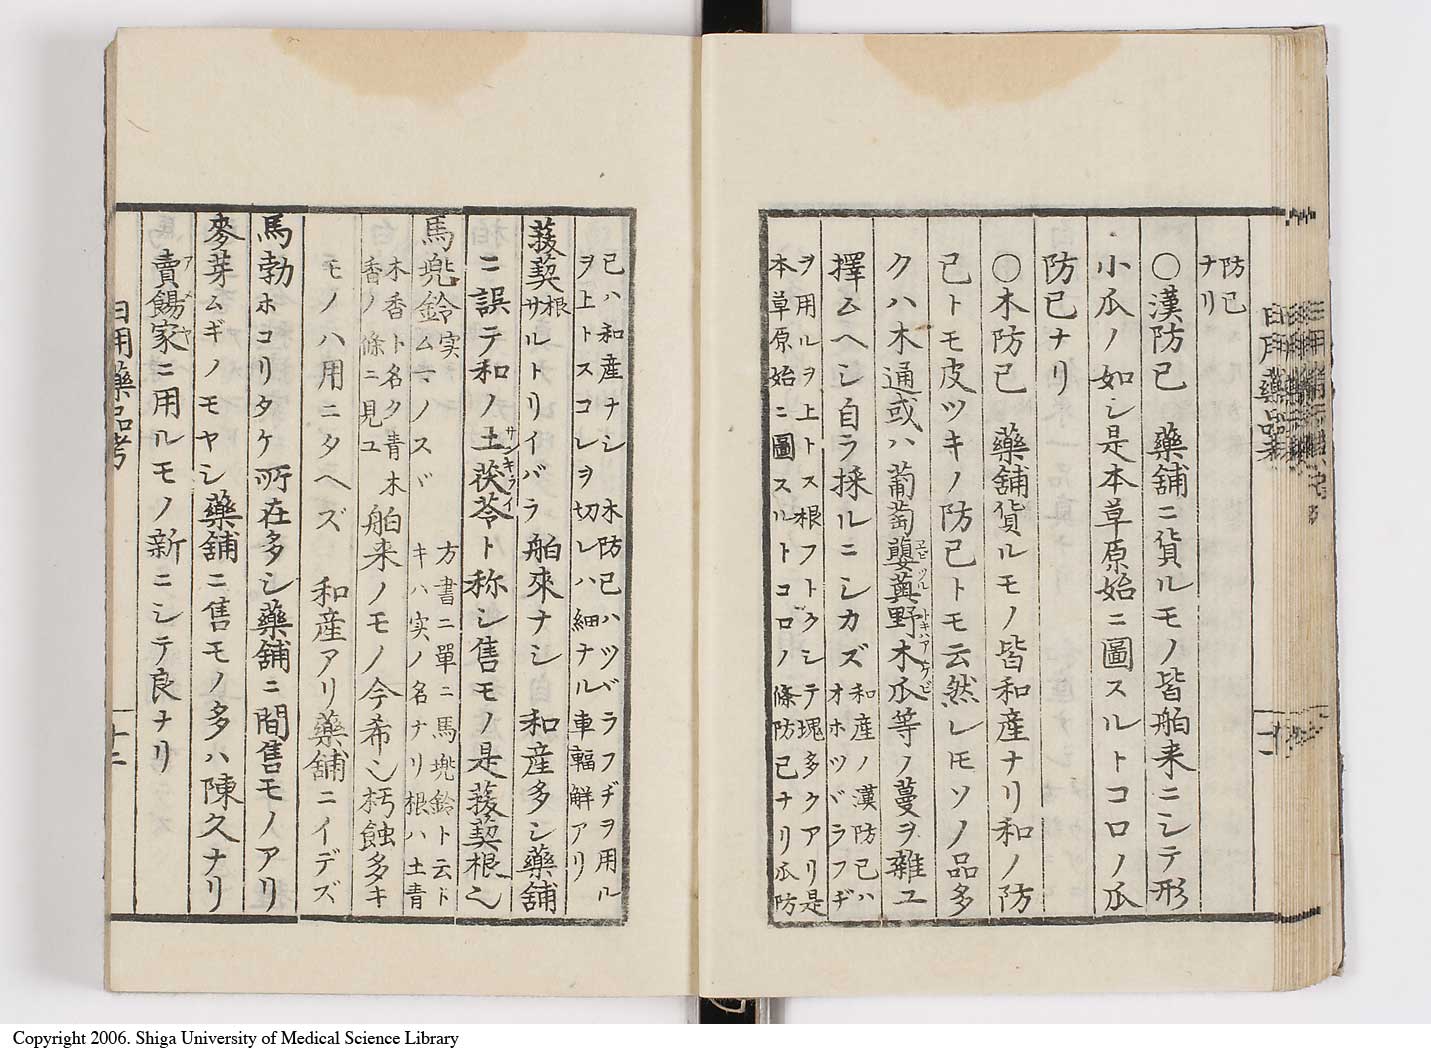 防已
ナリ
〇漢防已　藥舗ニ貨ルモノ皆舶来ニシテ形
小瓜ノ如シ是本草原始ニ圖スルトコロノ瓜
防已ナリ
〇木防已　藥舗貨ルモノ皆和産ナリ和ノ防
已トモ皮ツキノ防已トモ云然レ𪜈ソノ品多
クハ木通或ハ葡萄蘡薁野木瓜等ノ蔓ヲ雜ユ
エビヅル
トキハアケビ
擇ムヘシ自ラ採ルニシカズ
和産ノ漢防已ハ
オホツヾラフヂ
ヲ用ルヲ上トス根フトクシテ塊多クアリ是
本草原始ニ圖スルトコロノ條防已ナリ瓜防
日用藥品考
十一
已ハ和産ナシ　木防已ハツヾラフヂヲ用ル
ヲ上トスコレヲ切レハ細ナル車輻觧アリ
菝葜根　サルトリイバラ　舶來ナシ　和産多シ藥舗
ニ誤テ和ノ土茯苓ト称シ售モノ是菝葜根也
サンキライ
馬兠鈴実　ムマノスヾ
方書ニ單ニ馬兠鈴ト云ト
キハ実ノ名ナリ根ハ土青
木香ト名ク青木
香ノ條ニ見ユ
舶来ノモノ今希也朽蝕多キ
モノハ用ニタヘズ　和産アリ藥舗ニイデズ
馬勃　ホコリタケ　所在多シ藥舗ニ間售モノアリ
麥芽　ムギノモヤシ　藥舗ニ售モノ多ハ陳久ナリ
賣餳家ニ用ルモノ新ニシテ良ナリ
アメヤ
日用藥品考
十二
Copyright 2006. Shiga University of Medical Science Library